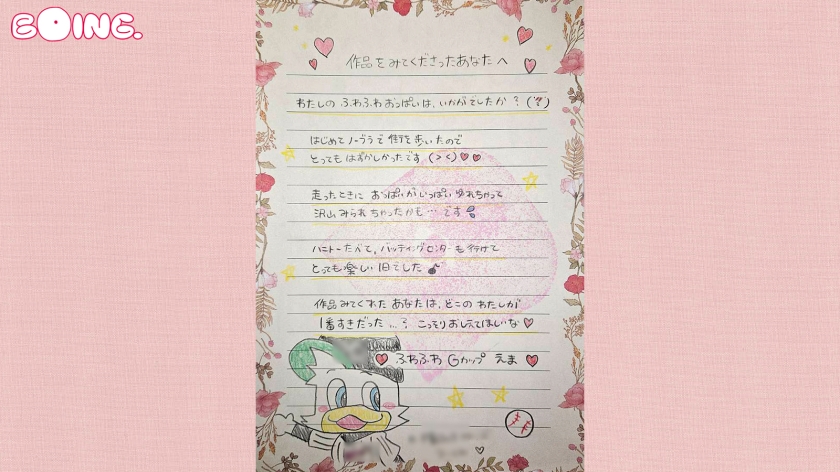 BOINC.
作品をみてくださったあなたへ
わたしの ふわふわおっぱいは、いかがでしたか？(♡?)
はじめてノーブラで街を歩いたので
とってもはずかしかったです (＞＜)♡♡
走ったときに おっぱいがいっぱい ゆれちゃって
沢山みられちゃったかも…です
ハニトーたべて、バッティングセンターも行けて
とっても楽しい1日でした
作品みてくれた あなたは、どこの わたしが
1番すきだった…？ こっそりおしえてほしいな♡
♡ふわふわ Gカップ えま♡